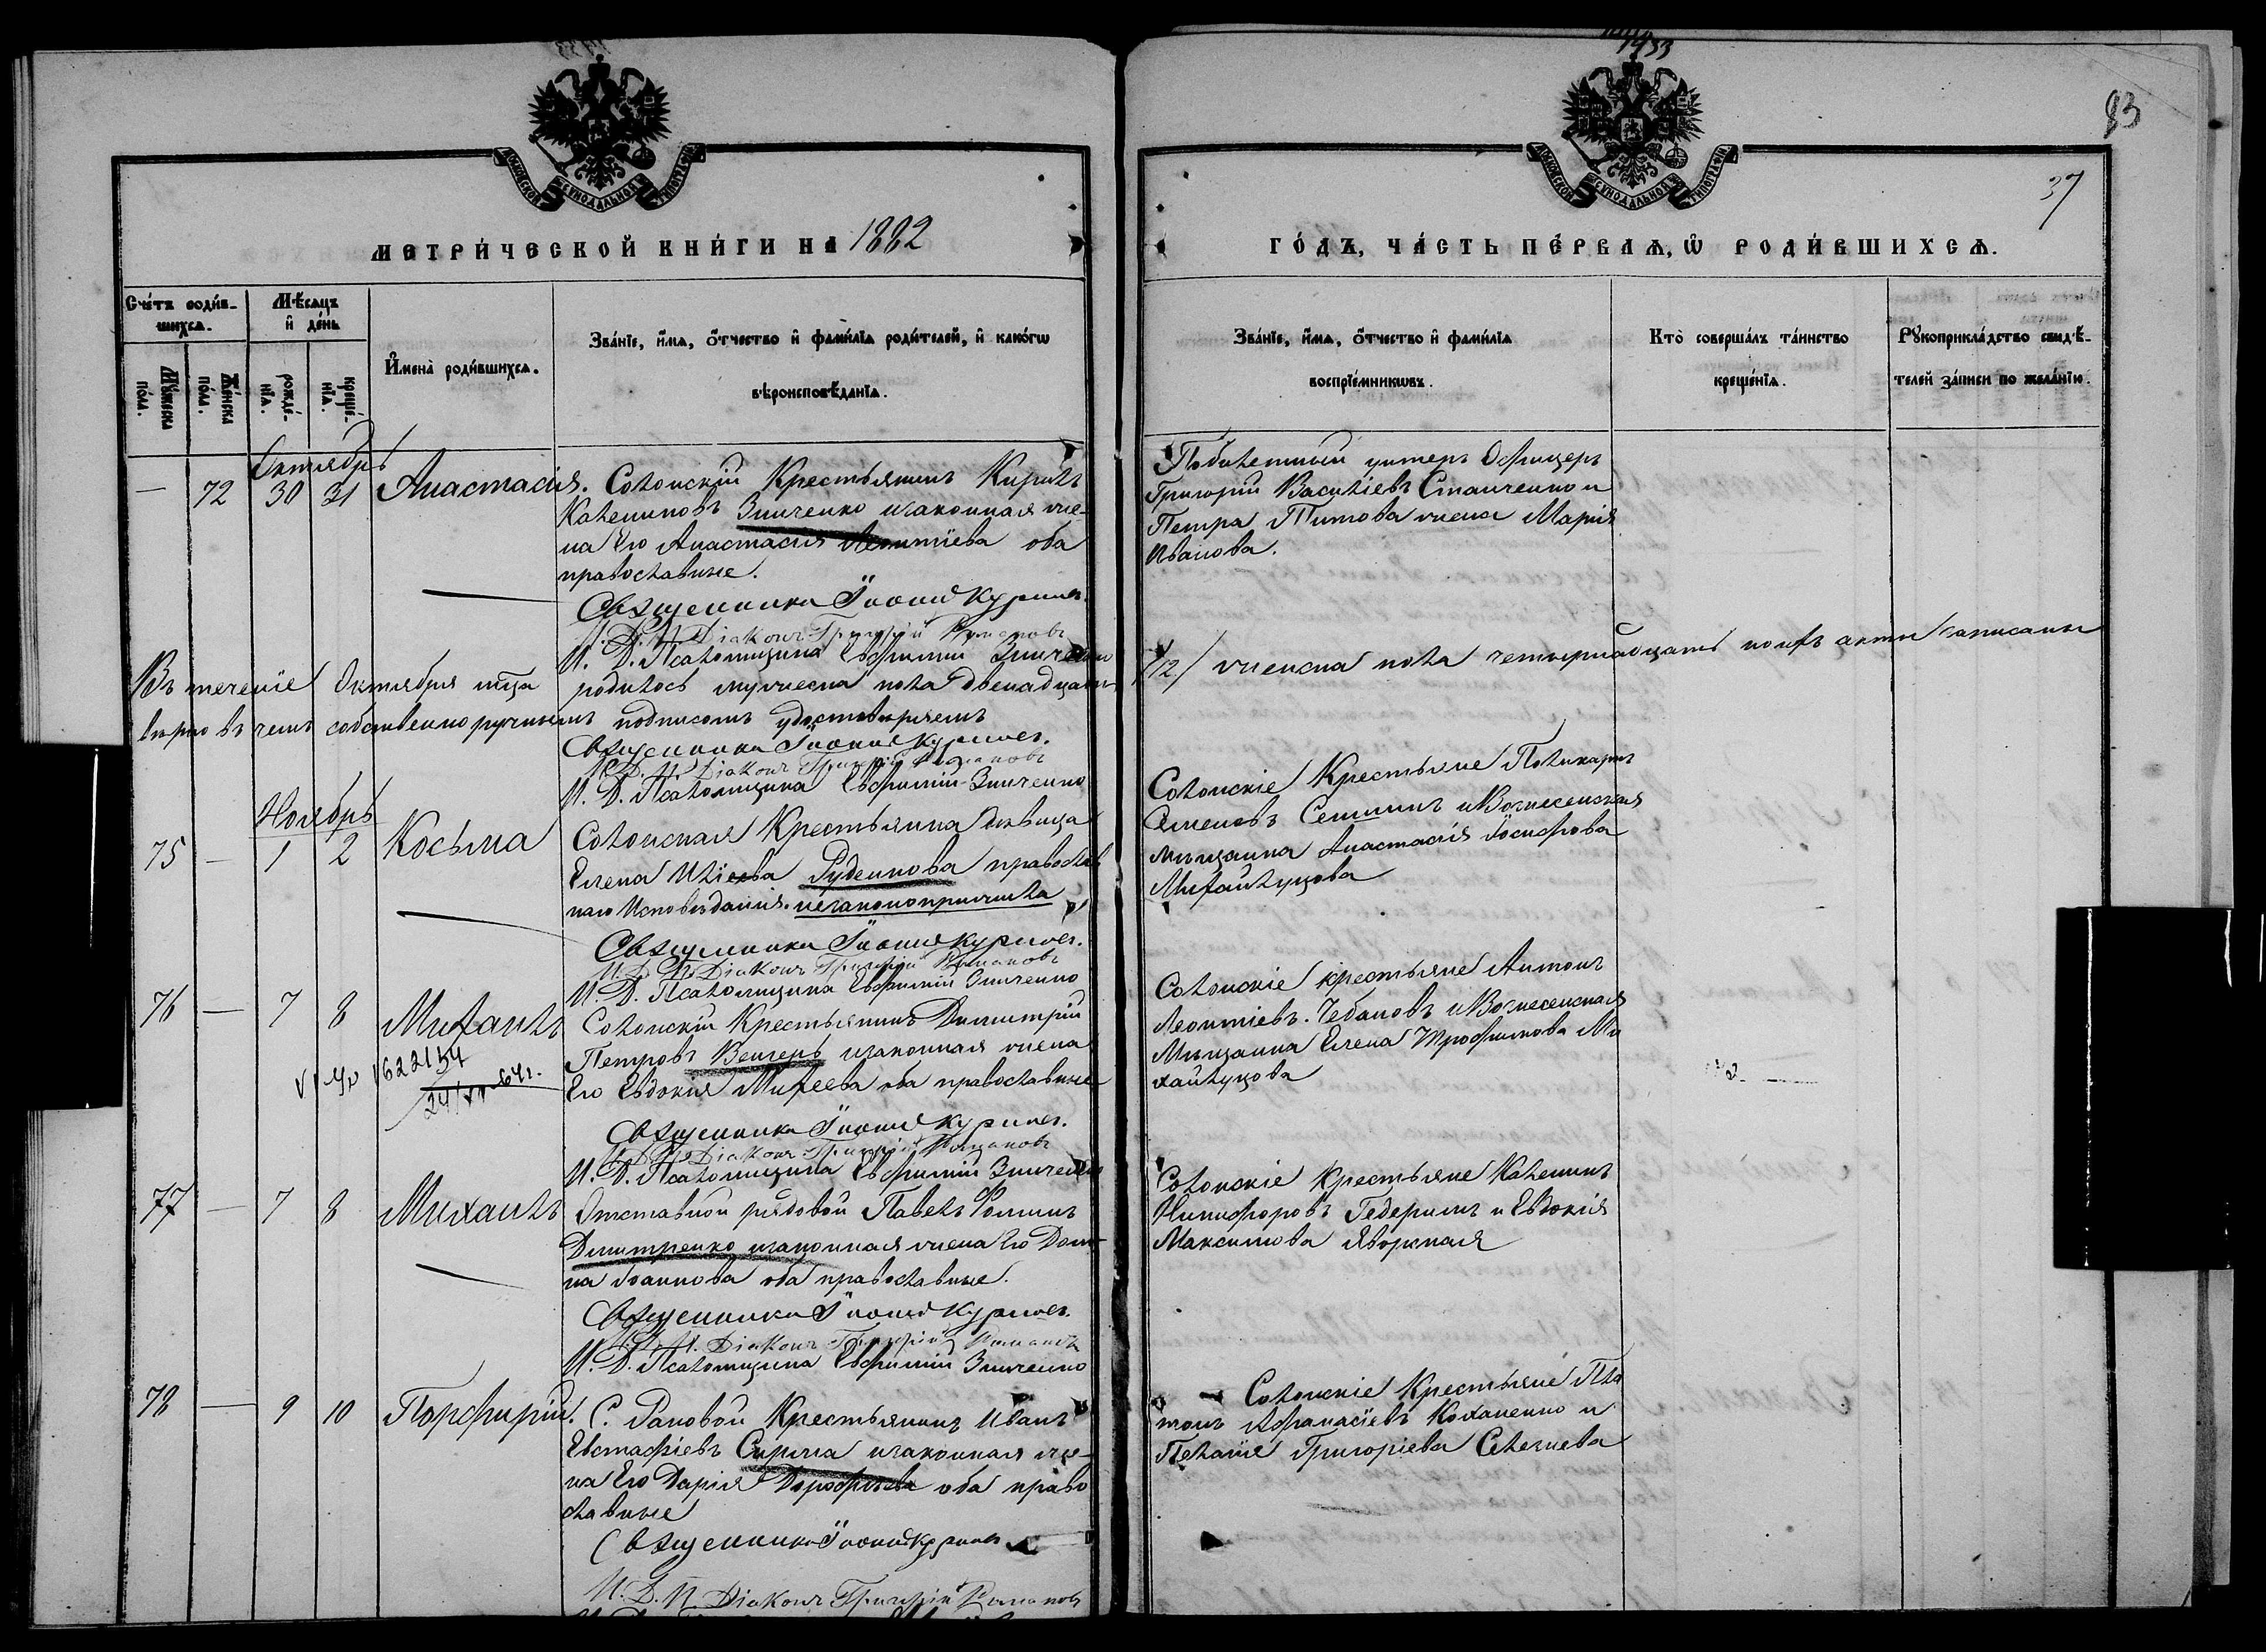 1933
83
37
МОСКОВСКОЙ СУНОДАЛЬНОЙ ТИПОГРАФІИ
МОСКОВСКОЙ СУНОДАЛЬНОЙ ТИПОГРАФІИ
МЕТРИ́ЧЕСКОЙ КНИ́ГИ НА 1882
ГО́ДЪ, ЧА́СТЬ ПЕ́РВАѦ, Ѡ҆ РОДИ́ВШИХСѦ.
Сче́тъ роди́в-
шихсѧ.
Мѣ́сѧцъ
и҆ де́нь
Мꙋ́жеска по́ла.
Же́нска по́ла.
рожде́-
нїѧ.
креще́-
нїѧ.
И҆мена̀ роди́вшихсѧ.
Зва́нїе, и҆́мѧ, ѻ҆́тчество и҆ фами́лїѧ роди́телей, и҆ како́гѡ
вѣроисповѣ́данїѧ.
Зва́нїе, и҆́мѧ, ѻ҆́тчество и҆ фами́лїѧ
воспрїе́мникѡвъ.
Кто̀ соверша́лъ та́инство
креще́нїѧ.
Рꙋкоприкла́дство свидѣ́-
телей за́писи по жела́нїю.
Октябрь
— 72 30 31 Анастасія. Солонскій Крестьянинъ Кирилъ
Калениковъ Зинченко изаконная же-
на Его Анастасія Леонтіева оба
православные.
Священникъ Іоаннъ
И. Д. П. Діаконъ Григорій Романовъ
И. Д. Псаломщика Евфимій Зинченко
Побилетный унтеръ Офицеръ
Григорій Василіевъ Станченко и
Петра Титова жена Марія
Иванова.
Въ теченіе Октября мца родилось мужеска пола двенадцать
/12/ женска пола четырнадцать коихъ акты записаны
вѣрно въ чемъ собственноручнымъ подписомъ удостовѣряемъ
Священникъ Іоаннъ
И. Д. П. Діаконъ Григорій Романовъ
И. Д. Псаломщика Евфимій Зинченко
Ноябрь
75 — 1 2 Косьма Солонская Крестьянка дѣвица
Елена Иліева Руденкова православ
наго Исповѣданія. незаконоприжила
Священникъ Іоаннъ
И. Д. П. Діаконъ Григорій Романовъ
И. Д. Псаломщика Евфимій Зинченко
Солонскіе Крестьяне Поликарпъ
Семеновъ и Вознесенская
мѣщанка Анастасія Іосифова
Михайлуцова
76 — 7 8 Михаилъ Солонскій Крестьянинъ Димитрій
Петровъ Венгеръ изаконная жена
Его Евдокія Михеева оба православные
622154
Священникъ Іоаннъ
И. Д. П. Діаконъ Григорій Романовъ
И. Д. Псаломщика Евфимій Зинченко
Солонскіе крестьяне Антонъ
Леонтіевъ Чебановъ и Вознесенская
Мѣщанка Елена Трофимова Ми
хайлуцова
77 — 7 8 Михаилъ Отставной рядовой Павелъ Фоминъ
Дмитренко изаконная жена Его Дом-
на Іоаннова оба православные.
Священникъ Іоаннъ
И. Д. П. Діаконъ Григорій Романовъ
И. Д. Псаломщика Евфимій Зинченко
Солонскіе Крестьяне Каленикъ
Никифоровъ Гедеримъ и Евдокія
Максимова Яворская
78 — 9 10 Порфирій. С. Раковой Крестьянинъ Иванъ
Евстафіевъ Сирма изаконная же-
на Его Дарія Дорофѣева оба право
славные
Священникъ Іоаннъ
И. Д. П. Діаконъ Григорій Романовъ
Солонскіе Крестьяне Пла
тонъ Афанасіевъ Коханенко и
Пелагія Григоріева Селезнева